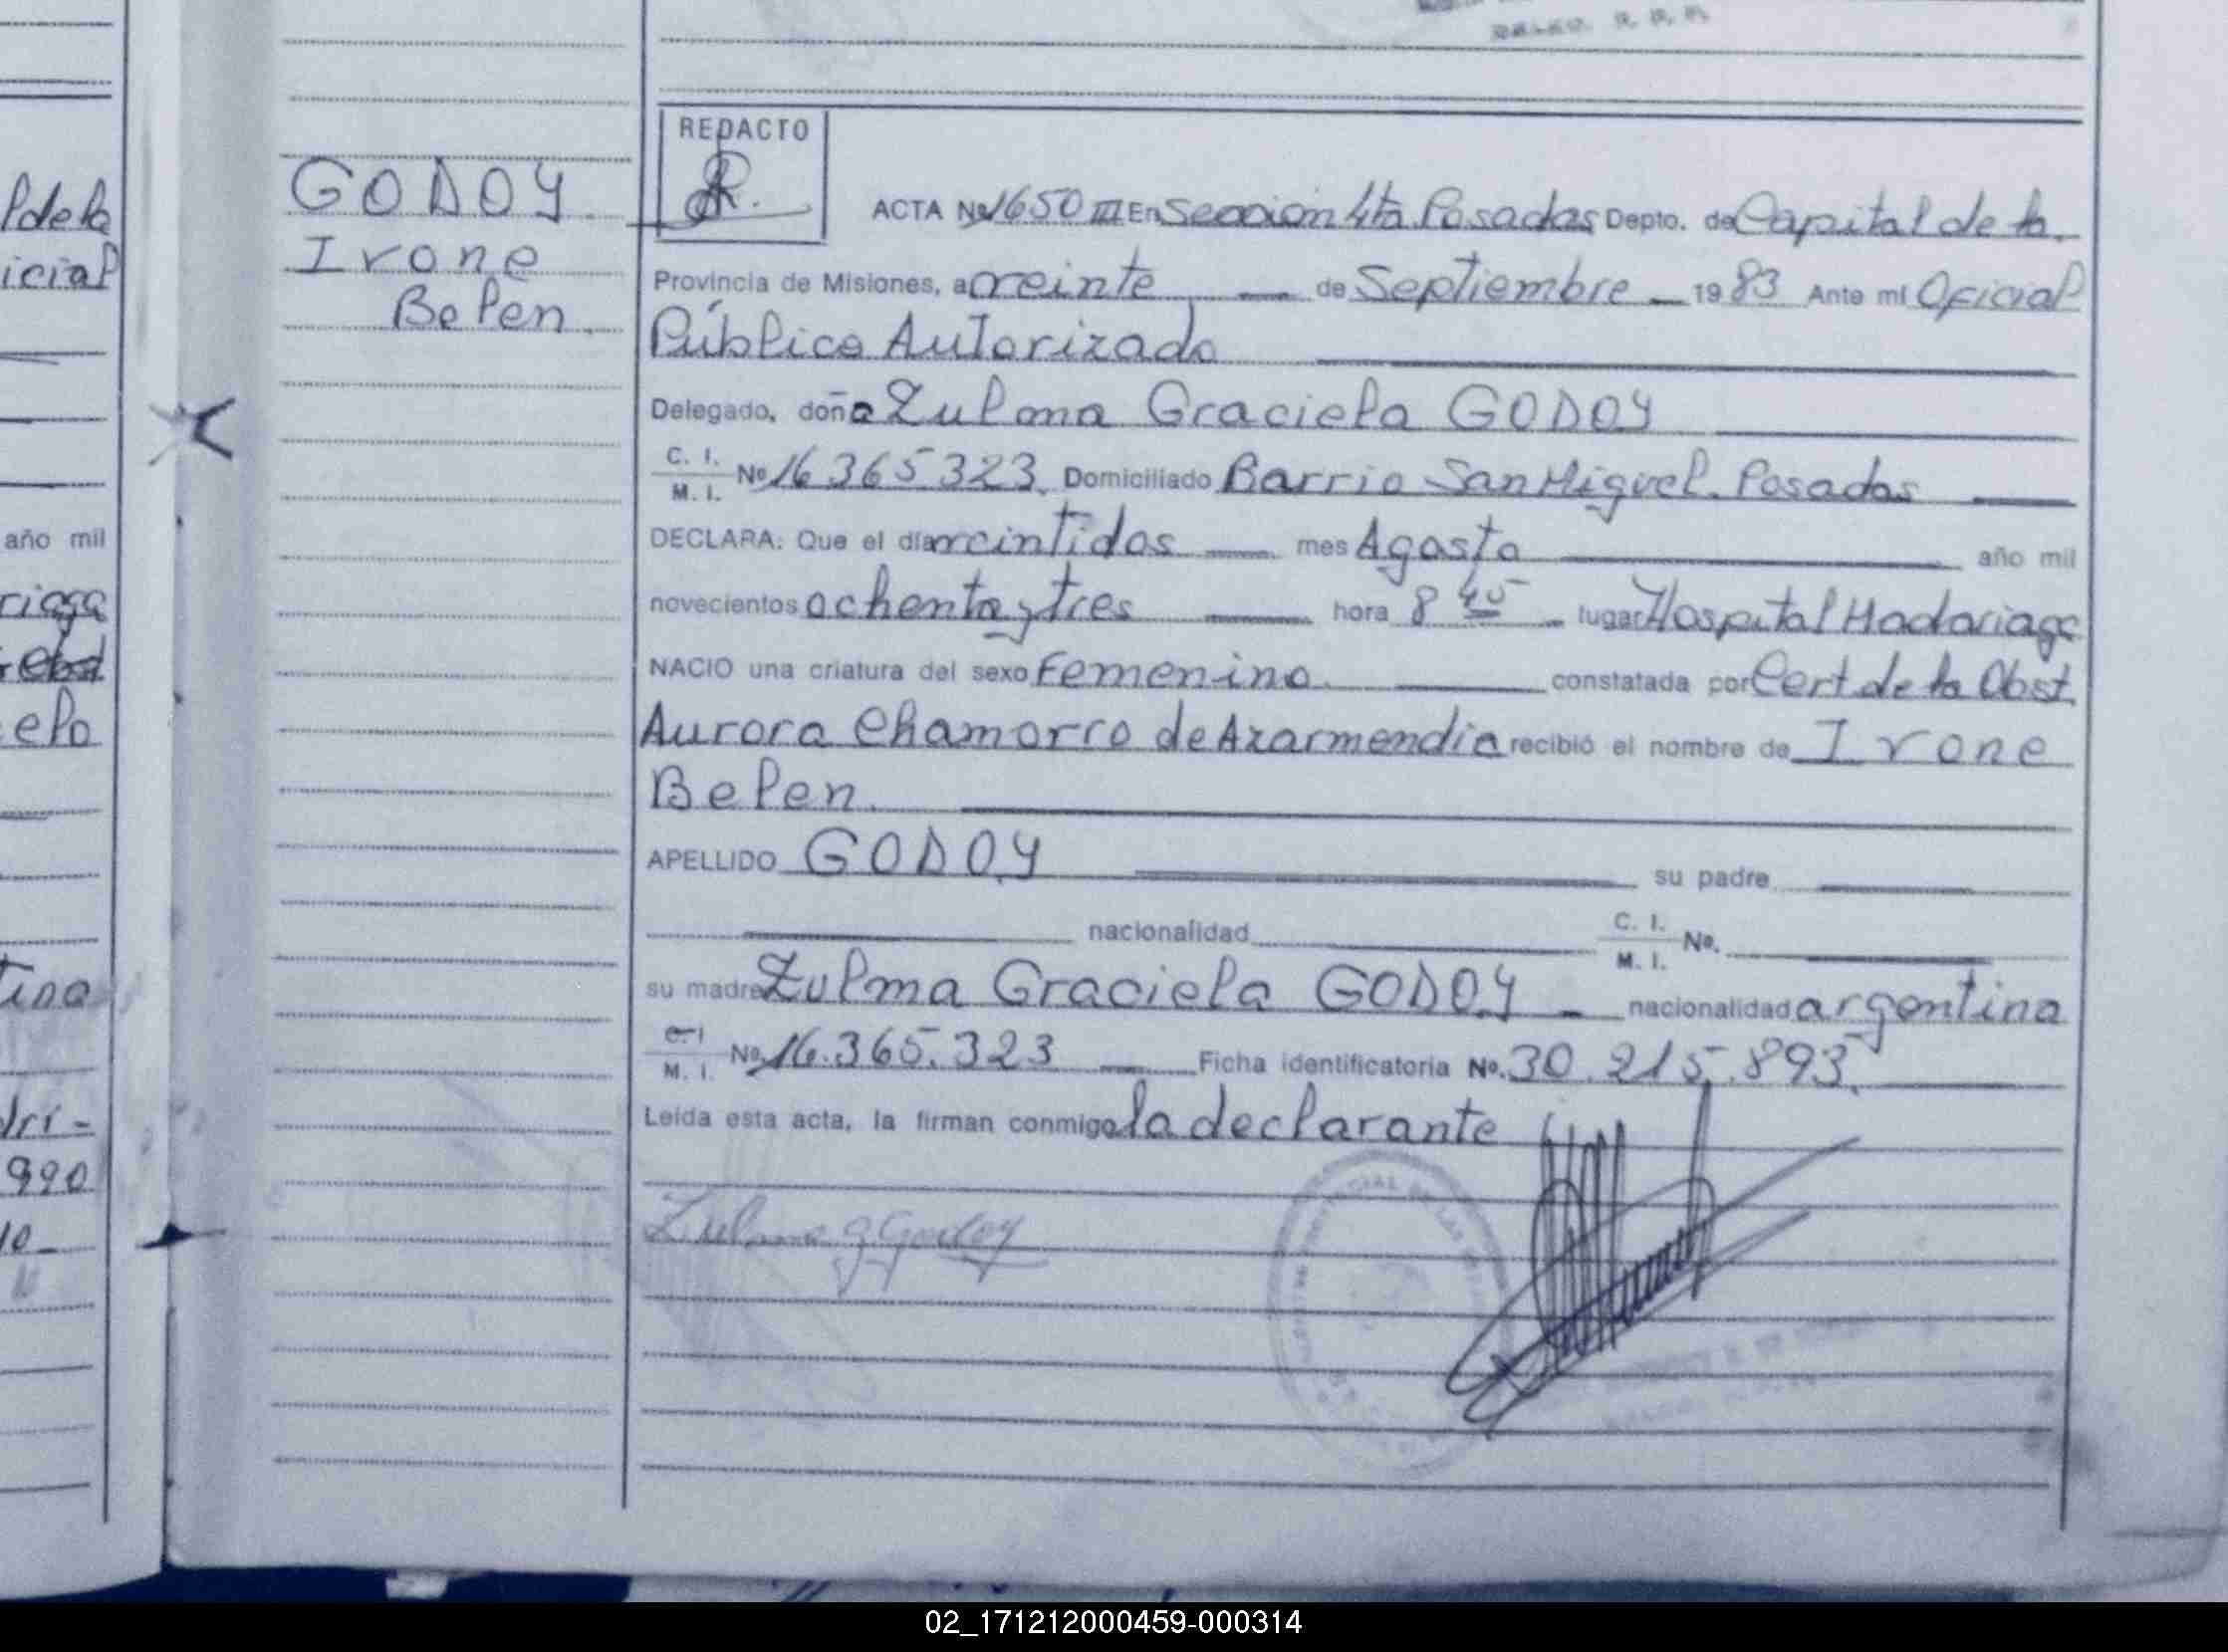 GODOY
Irone
Belen.
REDACTO
ACTA Nº 1650 III En Sección 4ta. Posadas Depto. de Capital de la
Provincia de Misiones, a veinte de Septiembre 19 83 Ante mí Oficial
Público Autorizado
Delegado, doña Zulma Graciela GODOY
C. I. M. I. Nº 16.365.323. Domiciliado Barrio San Miguel. Posadas
DECLARA: Que el día veintidos mes Agosto año mil
novecientos ochenta y tres hora 8 45 lugar Hospital Madariaga
NACIO una criatura del sexo Femenino. constatada por Cert de la Obst
Aurora Chamorro de Azarmendia recibió el nombre de Irone
Belen.
APELLIDO GODOY su padre
nacionalidad C. I. M. I. Nº.
su madre Zulma Graciela GODOY nacionalidad argentina
C. I. M. I. Nº. 16.365.323 Ficha identificatoria Nº. 30.215.893.
Leída esta acta, la firman conmigo la declarante
Zulma G Godoy
l de la
icial
año mil
riaga
elo
tina
990
10
02_171212000459-000314